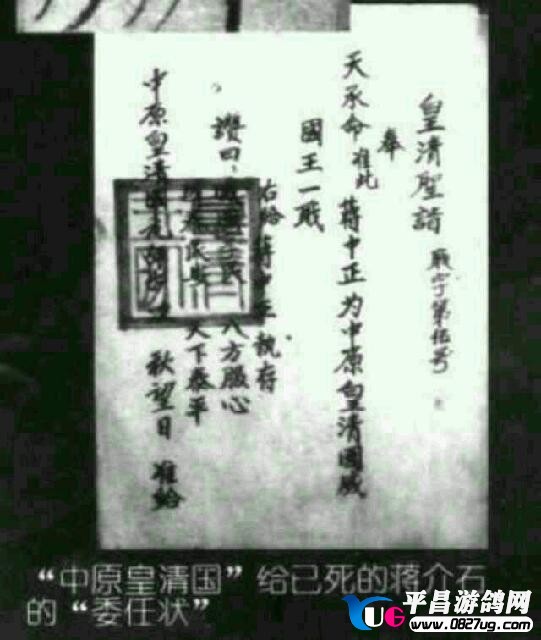 皇清聖 字第伍号
奉
天承命 准此 蒋中正为中原皇清國威
國王一
右给蒋中正执存
讚曰： 八方服心
天下泰平
中原皇清 秋望日 准给
“中原皇清国”给已死的蒋介石
的“委任状”
YUG 平昌游鸽网
www.0827ug.com